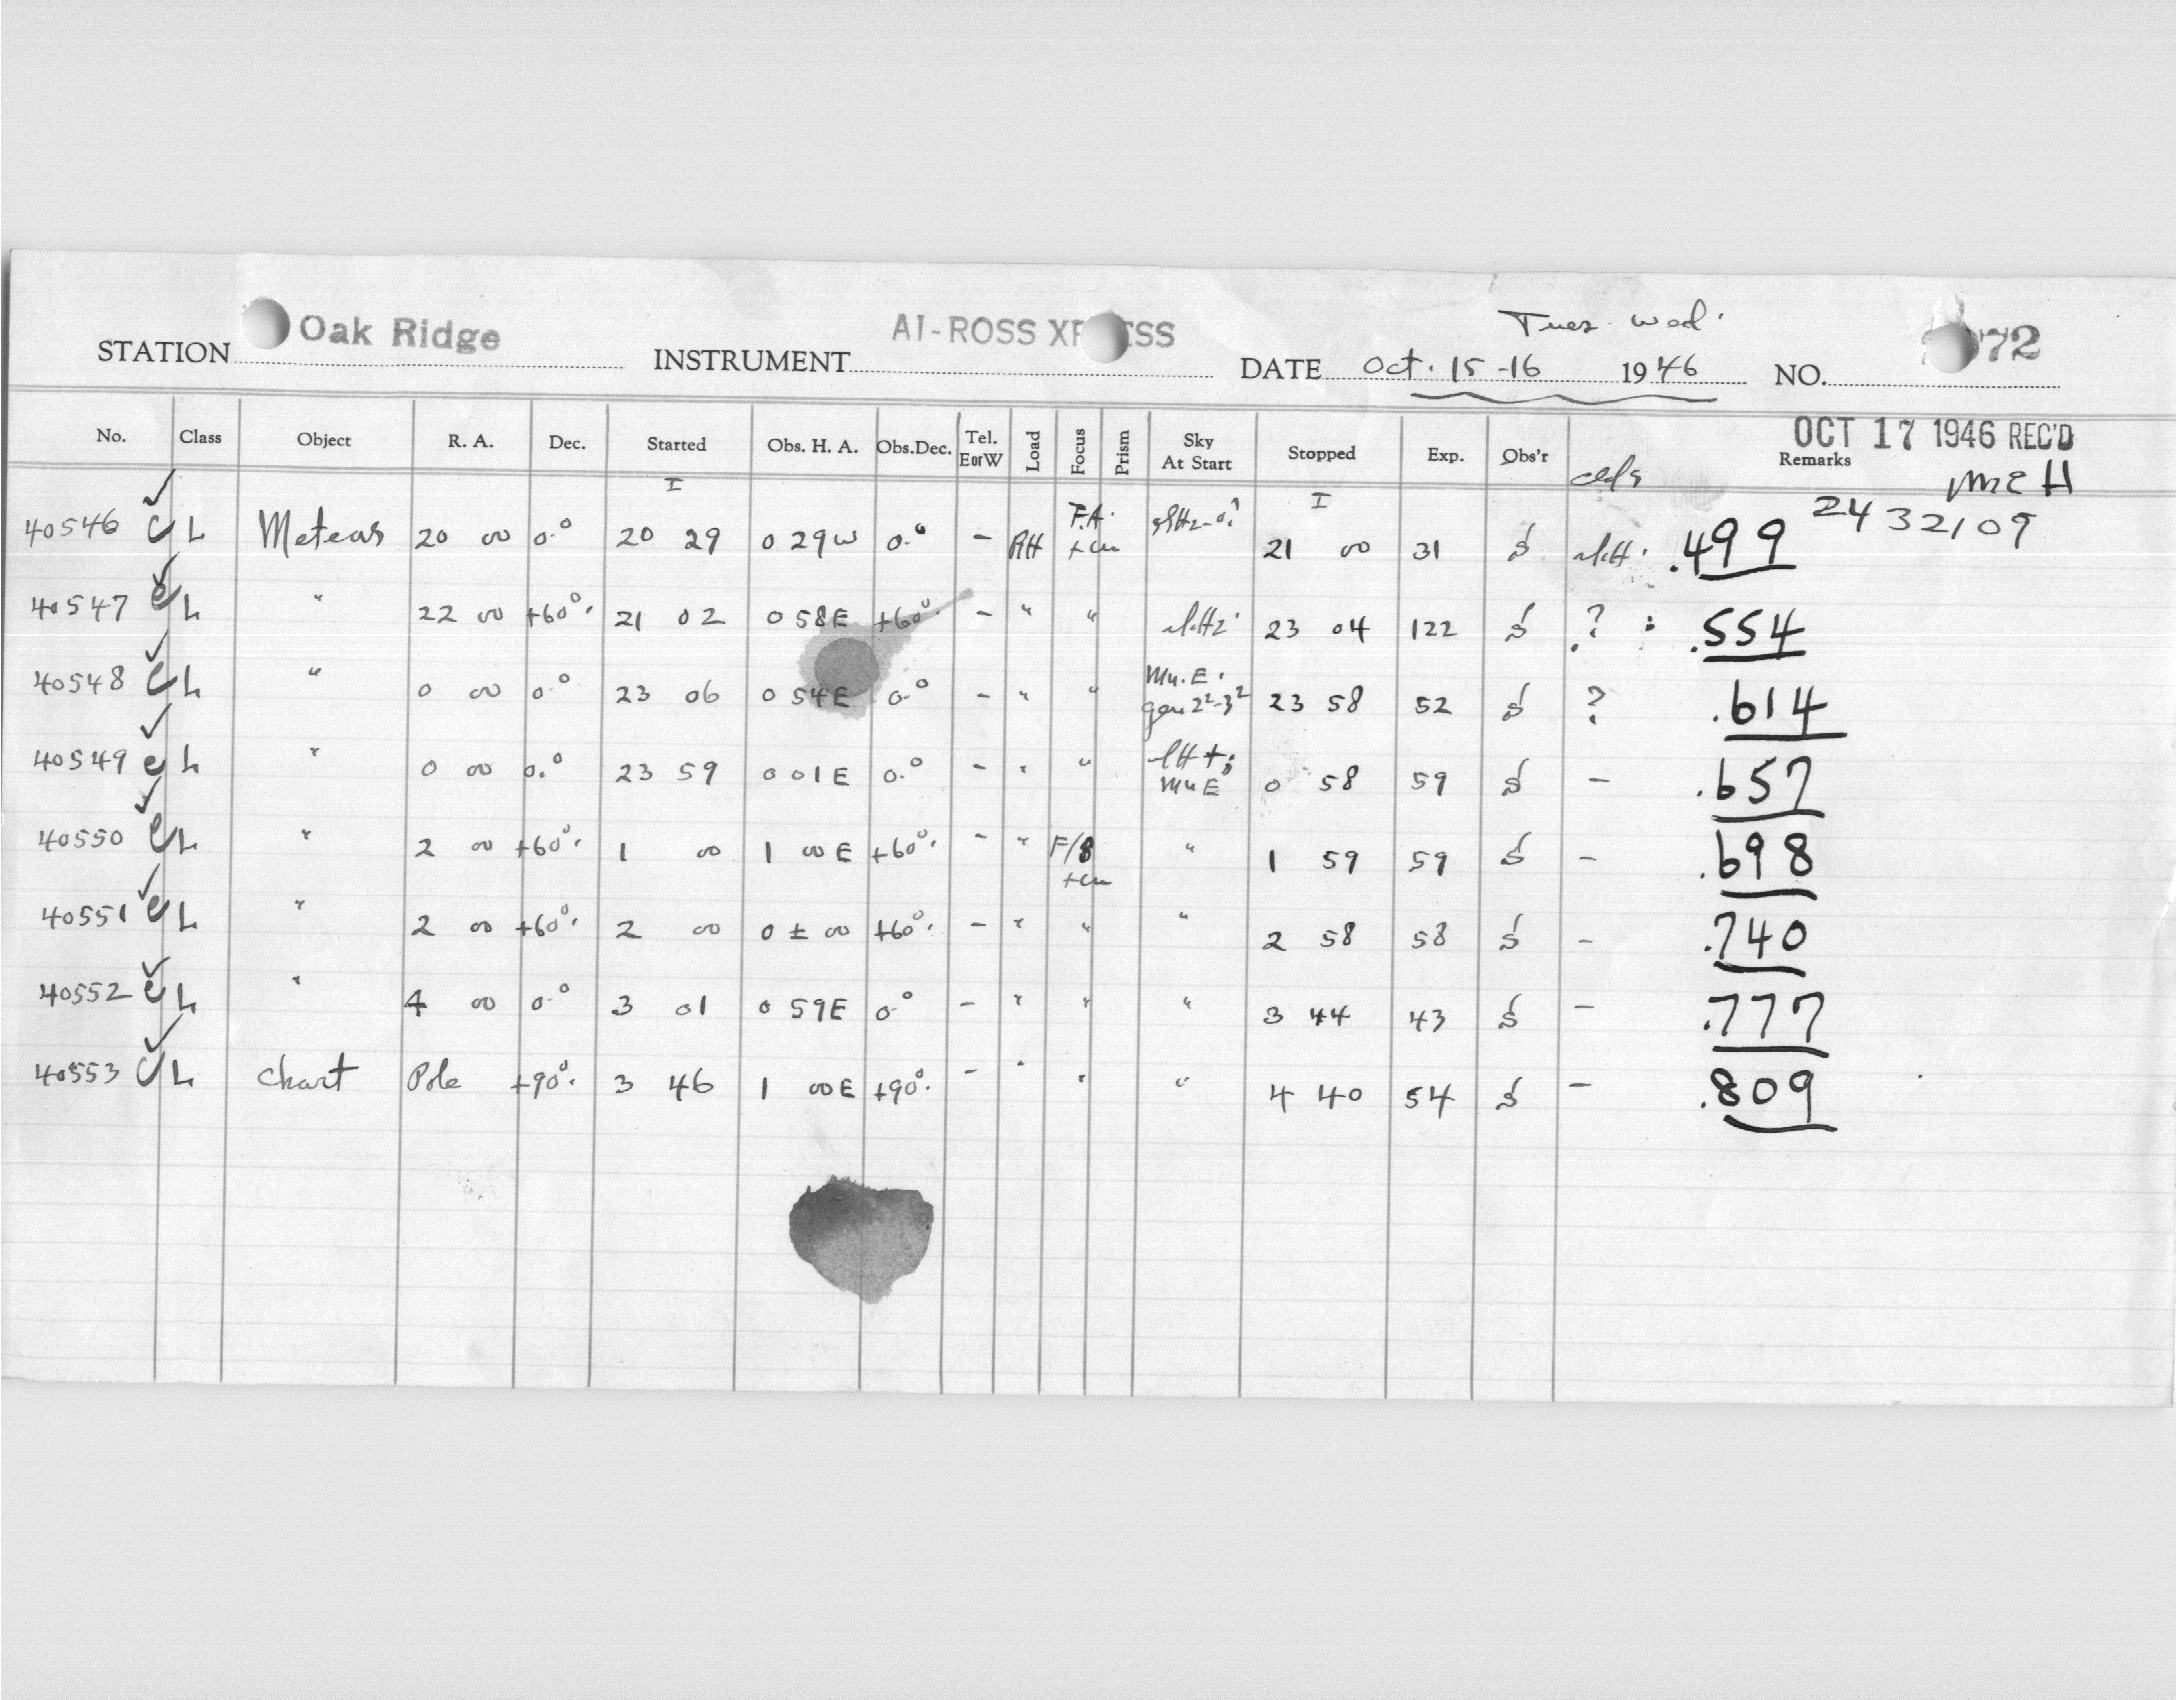 Tues. Wed.
STATION Oak Ridge INSTRUMENT AI-ROSS XP SS DATE Oct. 15-16 1946 NO. 72
OCT 17 1946 REC'D
No. Class Object R. A. Dec. Started Obs. H. A. Obs.Dec. Tel. E or W Load Focus Prism Sky At Start Stopped Exp. Obs'r Remarks
McH
I I
2432109
40546 C L Meteors 20 00 0.° 20 29 0 29W 0.° - RH F.A. +cm 21 00 31 S .499
40547 C L " 22 00 +60°. 21 02 0 58E +60°. - " " 23 04 122 S ? : .554
40548 C L " 0 00 0.° 23 06 0 54E 0.° - " " Mn.E. 2²-3² 23 58 52 S ? .614
40549 C L " 0 00 0.° 23 59 0 01E 0.° - " " Mn E 0 58 59 S - .657
40550 C L " 2 00 +60°. 1 00 1 00E +60°. - " F/8 +cm " 1 59 59 S - .698
40551 C L " 2 00 +60°. 2 00 0 ± 00 +60°. - " " " 2 58 58 S - .740
40552 C L " 4 00 0.° 3 01 0 59E 0° - " " " 3 44 43 S - .777
40553 C L Chart Pole +90°. 3 46 1 00E +90°. - " " " 4 40 54 S - .809